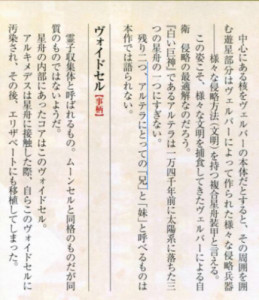 中心にある核をヴェルバーの本体だとすると、その周囲を囲
む遊星部分はヴェルバーによって作られた様々な侵略兵器
――様々な侵略方法（文明）を持つ複合星舟装甲と言える。
この姿こそ、様々な文明を捕食してきたヴェルバーによる自
衛　侵略の最適解なのだろう。
『白い巨神』であるアルテラは一万四千年前に太陽系に落ちた三
つの星舟の一つにすぎない。
残り二つ、アルテラにとっての「兄」と「妹」と呼べるものは
本作では語られない。
ヴォイドセル【事柄】
霊子収集体と呼ばれるもの。ムーンセルと同格のものだが同
質のものではないようだ。
星舟の内部にあったコアはこのヴォイドセル。
アルキメデスは星舟に接触した際、自らこのヴォイドセルに
汚染され、その後、エリザベートにも移植してしまった。